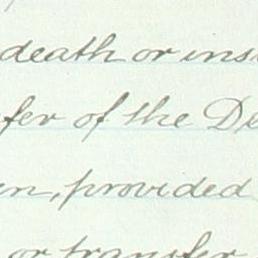 death or ins
fer of the De
en, provided
or transfer